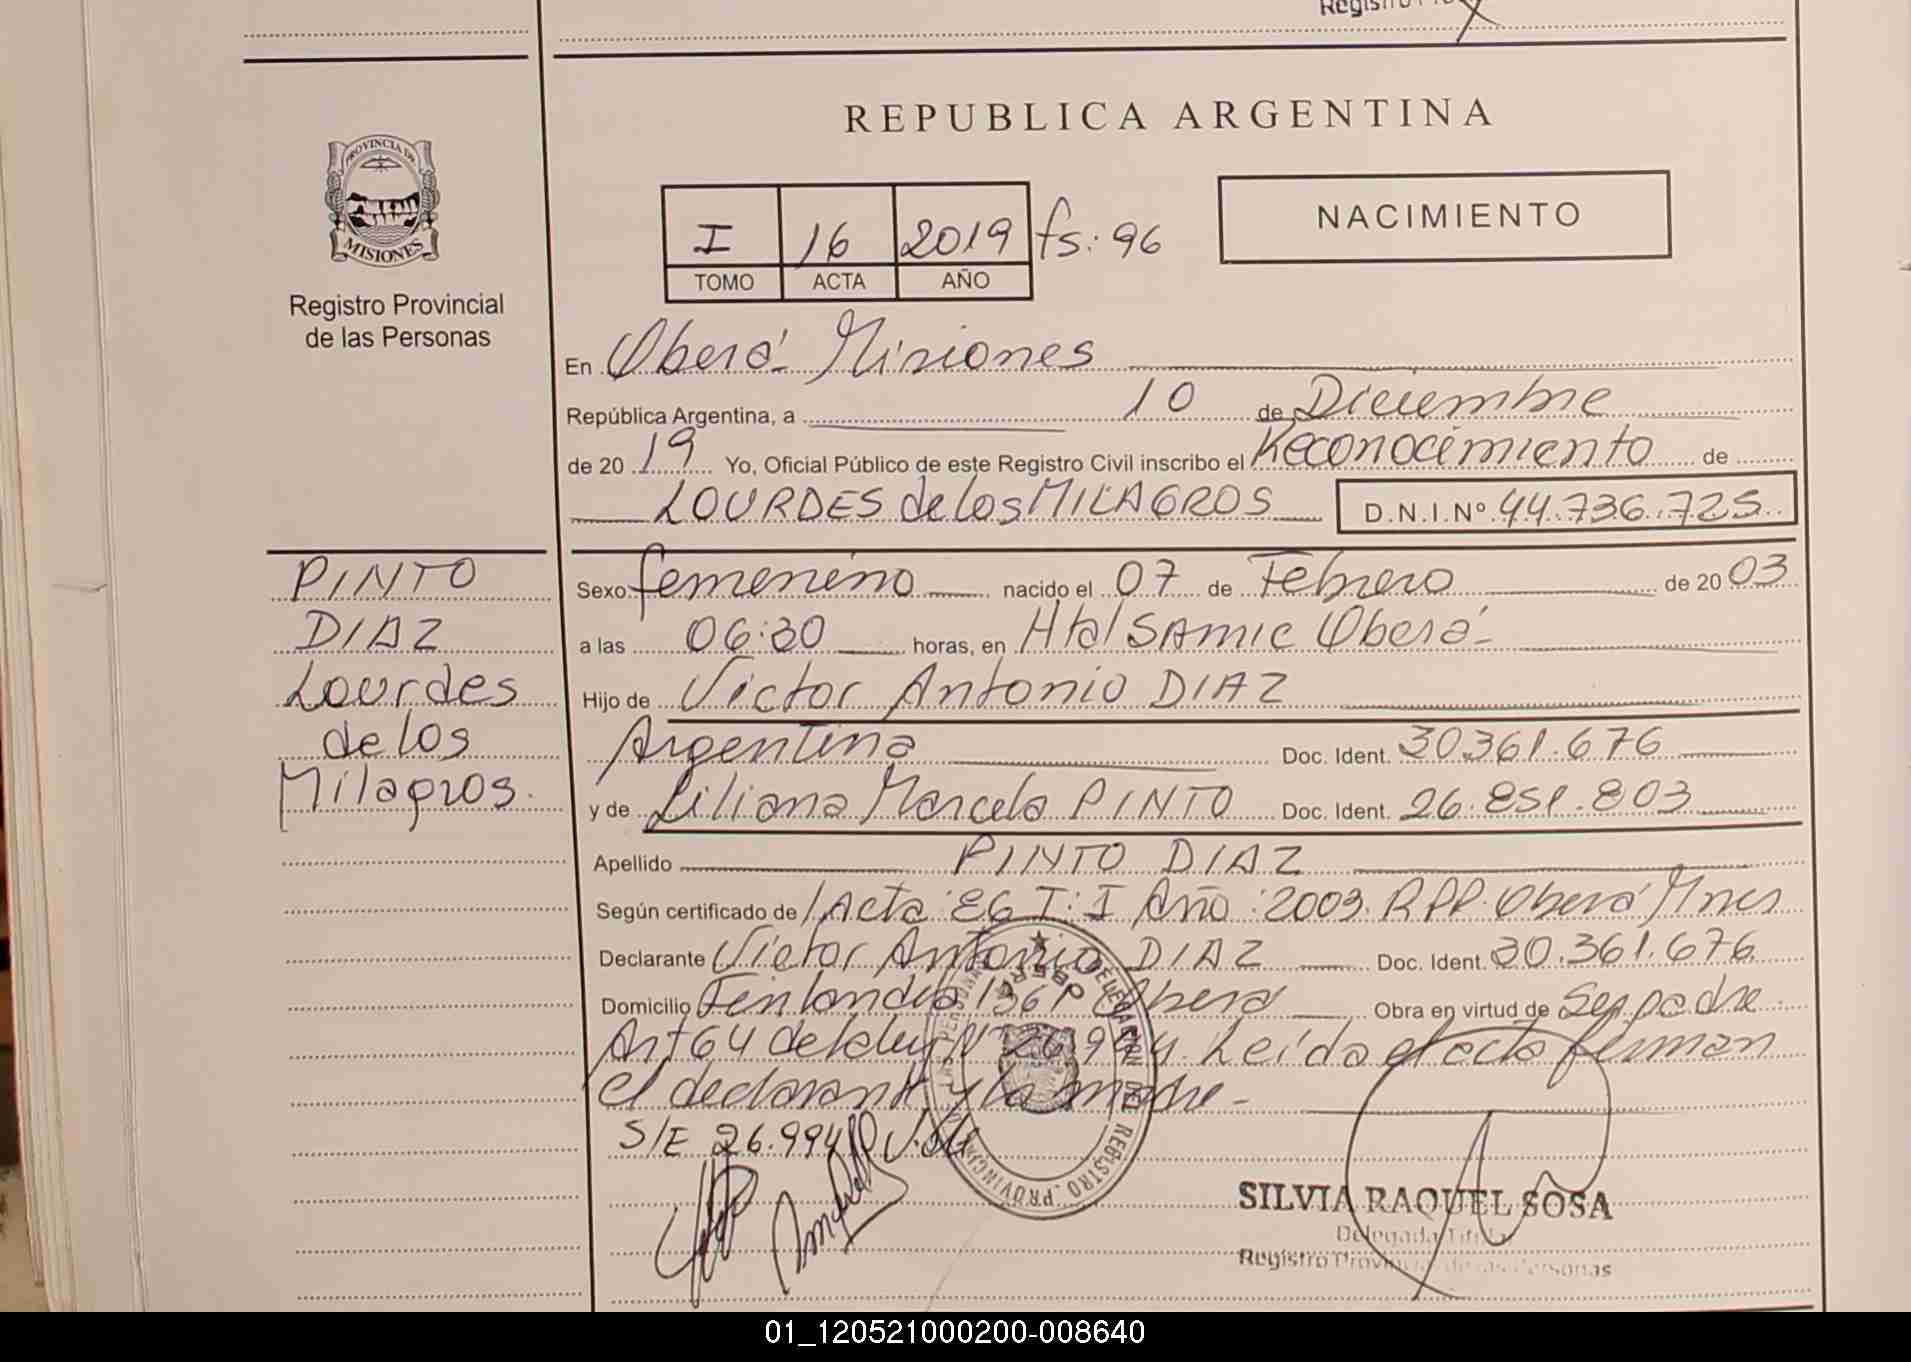 REPUBLICA ARGENTINA
PROVINCIA DE
MISIONES
Registro Provincial
de las Personas
I 16 2019 fs: 96
TOMO ACTA AÑO
NACIMIENTO
En Oberá Misiones
República Argentina, a 10 de Diciembre
de 20 19 Yo, Oficial Público de este Registro Civil inscribo el Reconocimiento de
LOURDES de los MILAGROS D.N.I.Nº 44.736.725
PINTO
DIAZ
Lourdes
de los
Milagros.
Sexo femenino nacido el 07 de Febrero de 20 03
a las 06:30 horas, en Htal SAMIC Oberá
Hijo de Victor Antonio DIAZ
Argentina Doc. Ident. 30.361.676
y de Liliana Marcela PINTO Doc. Ident. 26.851.803
Apellido PINTO DIAZ
Según certificado de Acta: 86 T: I Año: 2003. RPP. Oberá Mnes
Declarante Victor Antonio DIAZ Doc. Ident. 30.361.676
Domicilio Finlandia 1361 Oberá Obra en virtud de Ser padre
Art 64 de la ley Nº 26.994. Leída el acta firman
el declarante y la madre-
S/E 26.994
SILVIA RAQUEL SOSA
Delegada Titular
Registro Provincial de las Personas
DELEGACION DEL REGISTRO PROVINCIAL
01_120521000200-008640